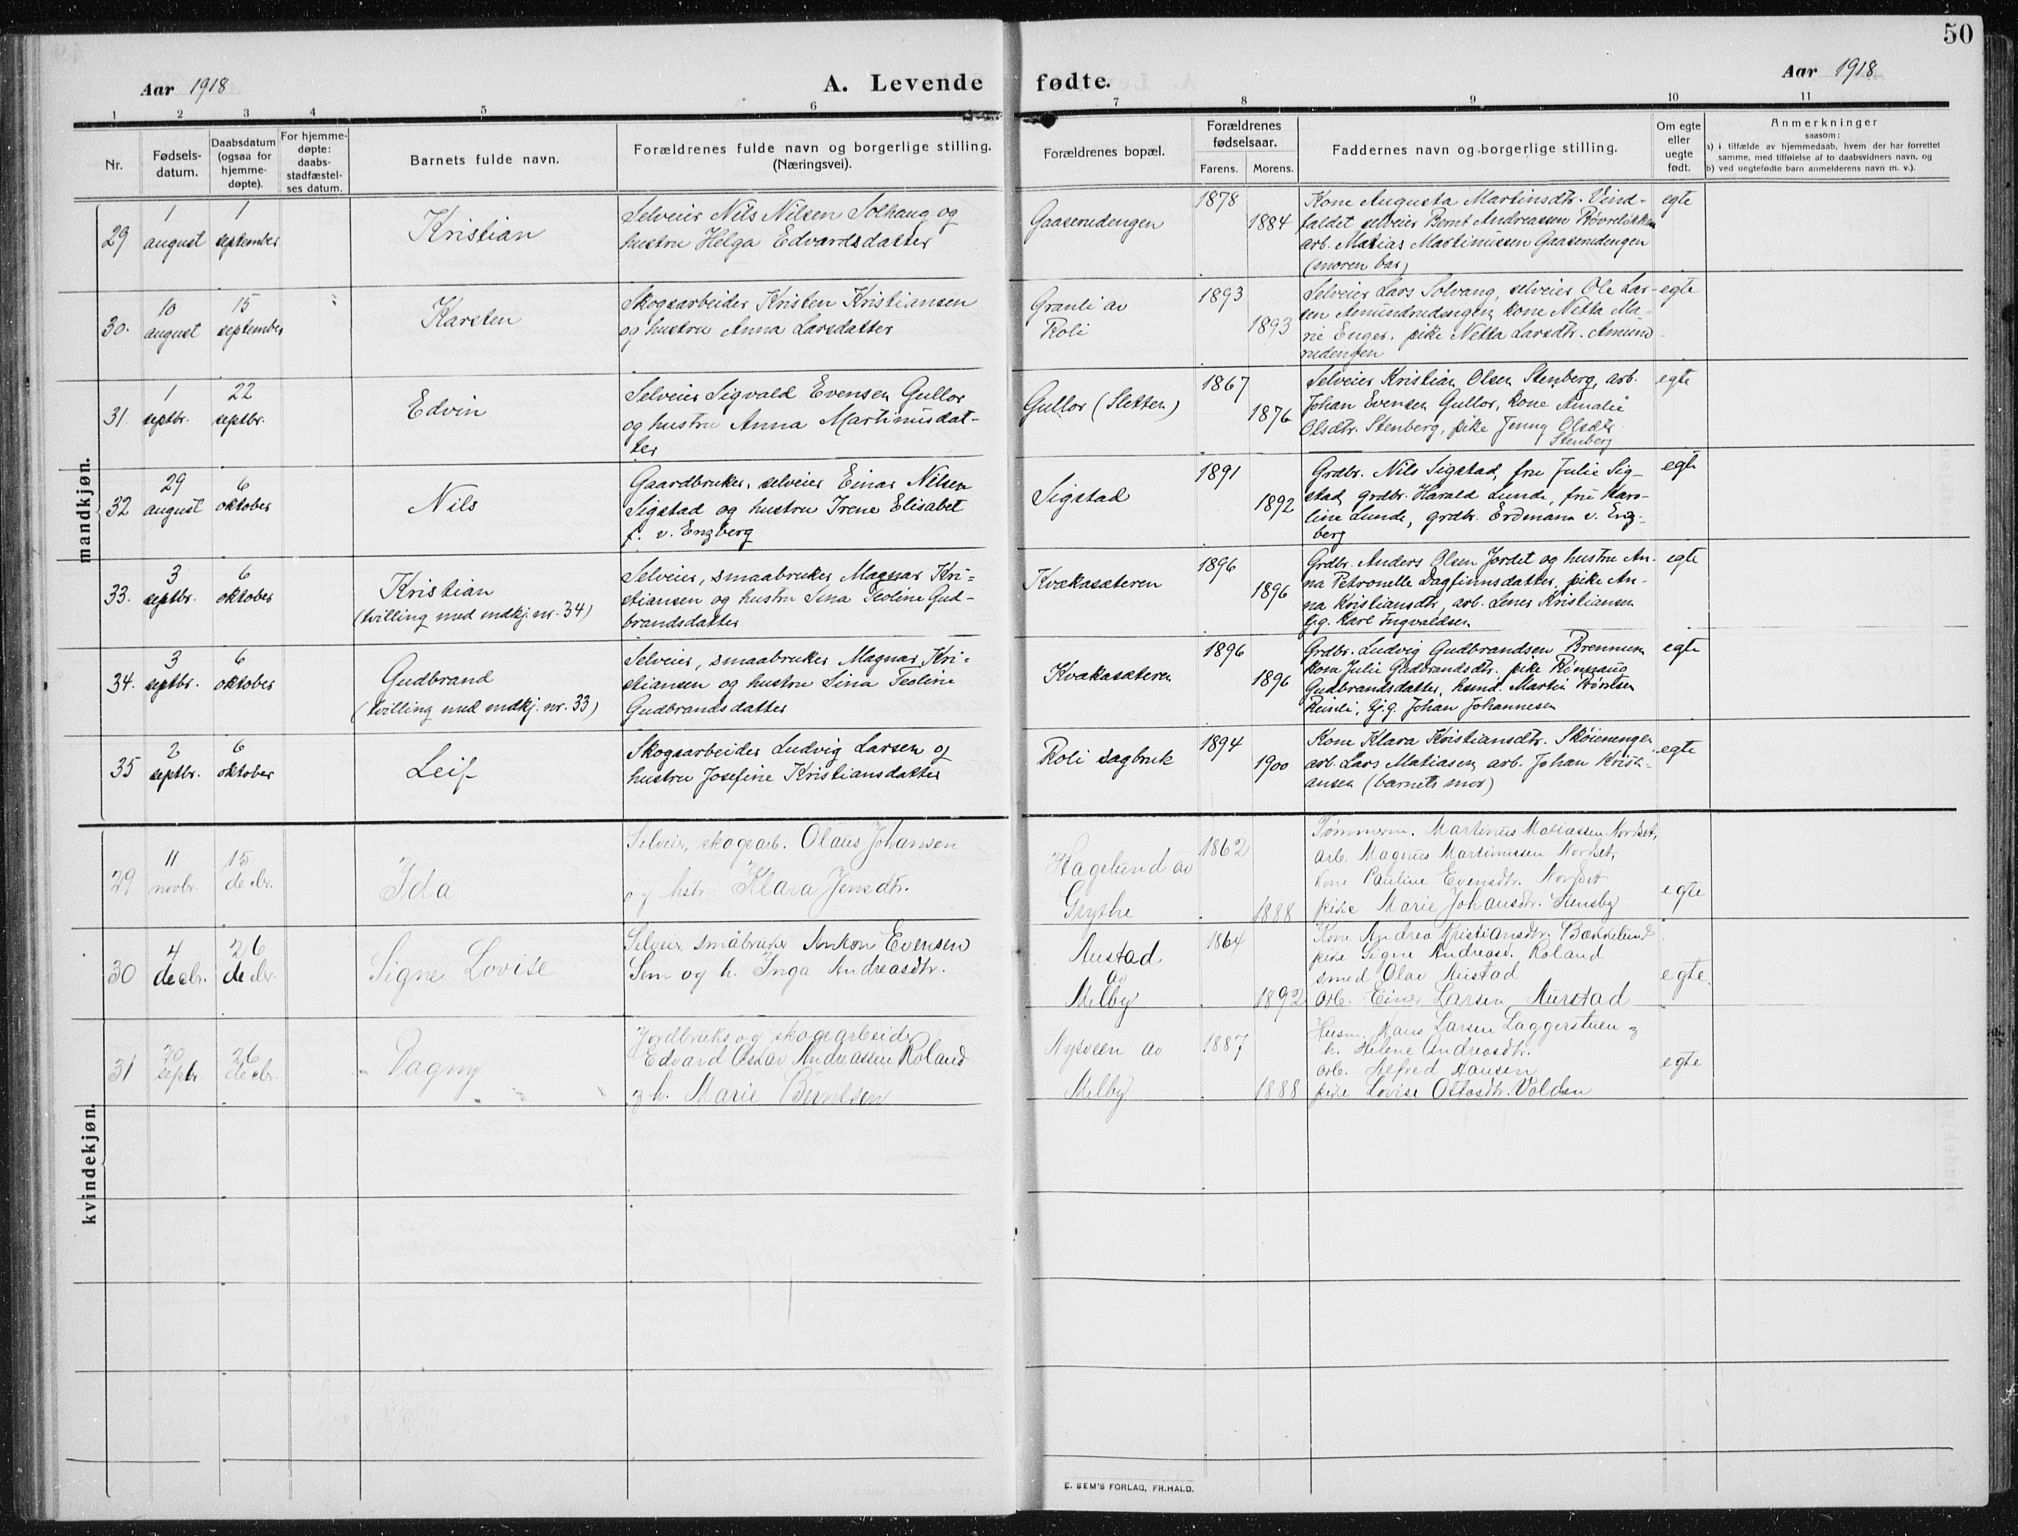 50
Aar 1918
A. Levende fødte.
Aar 1918
1 2 3 4 5 6 7 8 9 10 11
Nr.
Fødsels-
datum.
Daabsdatum
(ogsaa for
hjemme-
døpte).
For hjemme-
døpte:
daabs-
stadfæstel-
ses datum.
Barnets fulde navn.
Forældrenes fulde navn og borgerlige stilling.
(Næringsvei).
Forældrenes bopæl.
Forældrenes
fødselsaar.
Farens. Morens.
Faddernes navn og borgerlige stilling.
Om egte
eller
uegte
født.
Anmerkninger
saasom:
a) i tilfælde av hjemmedaab, hvem der har forrettet
samme, med tilføielse af to daabsvidners navn, og
b) ved uegtefødte barn anmelderens navn (m. v.).
mandkjøn.
29
1
august
1
september
Kristian
Selveier Nils Nilsen Solhaug og
hustru Helga Edvardsdatter
Gaaserudengen
1878
1884
Kone Augusta Martinsdtr. Vind-
faldet selveier Bernt Andreassen
arb. Matias Martinussen Gaaserudengen
(moren bar)
egte
30.
10
august
15
september
Karsten
Skogsarbeider Kristen Kristiansen
og hustru Anna Larsdatter
Granli av
Roli
1893
1893
Selveier Lars Solvang, selveier Ole Lar-
sen Amundrudengen, kone Netta Ma-
rie Enger, pike Netta Larsdtr. Amund-
rudengen
egte
31.
1
septbr.
22
septbr.
Edvin
Selveier Sigvald Evensen Gullor
og hustru Anna Martinusdat-
ter
Gullor (Sletten)
1867
1876
Selveier Kristian Olsen Stenberg, arb.
Johan Evensen Gullor, kone Amalie
Olsdtr. Stenberg, pike Jenny Olsdtr.
Stenberg
egte
32
29
august
6
oktober
Nils
Gaardbruker, selveier Einar Nilsen
Sigstad og hustru Irene Elisabet
f. v. Enzberg
Sigstad
1891
1892
Grdbr. Nils Sigstad, fru Julie Sig-
stad, grdbr. Harald Lunde, fru Karo-
line Lunde, grdbr. Erdmann v. Enz-
berg
egte
33.
3
septbr.
6
oktober
Kristian
(tvilling med mdkj. nr. 34)
Selveier, smaabruker Magnar Kri-
stiansen og hustru Sina Teoline Gud-
brandsdatter
Kvækasæteren
1896
1896
Grdbr. Anders Olsen Jordet og hustru An-
na Petronelle Dagfinnsdatter, pike An-
na Kristiansdtr, arb. Lener Kristiansen
Gg. Karl Ingvaldsen
egte
34.
3
septbr.
6
oktober
Gudbrand
(tvilling med mdkj. nr. 33)
Selveier, smaabruker Magnar Kri-
stiansen og hustru Sina Teoline
Gudbrandsdatter
Kvækasæteren
1896
1896
Grdbr. Ludvig Gudbrandsen Brennum
kone Julie Gudbrandsdtr. pike Rønnaug
Gudbrandsdatter, husmd. Martin
Reinli, Gg. Johan Johannesen
egte
35
2
septbr.
6
oktober
Leif
Skogsarbeider Ludvig Larsen og
hustru Josefine Kristiansdatter
Roli sagbruk
1894
1900
Kone Klara Kristiansdtr. Skøienengen,
arb. Lars Matiasen, arb. Johan Kristi-
ansen (barnets mor)
egte
kvindekjøn.
29
11
novbr.
15
decbr.
Ida
Selveier, skogsarb. Olaus Johansen
og hstr. Klara Jensdtr.
Hagelund av
Grythe
1862
1888
Tømmerm. Martinus Matiassen Nordset,
arb. Magnus Martinussen Nordset,
kone Pauline Evensdtr. Nordset
pike Marie Johansdtr. Stensby
egte
30
4
decbr.
26
decbr
Signe Lovise
Selveier, småbruker Anton Evensen
og h. Inga Andreasdtr.
Austad
av
Melby
1864
1892
Kone Andrea Kristiansdtr. Bækkelund
pike Signe Andreasd. Roland
smed Olav Austad
arb. Einar Larsen Aurstad
egte.
31
20
septbr.
26
decbr.
Dagny
Jordbruks og skogsarbeider
Edvard Oskar Andreassen Roland
og h. Marie Berntsen
Nysveen av
Melby
1887
1888
Husm. Hans Larsen Laggerstuen og
h. Helene Andreasdtr.
arb. Alfred Hansen
pike Lovise Ottosdtr. Volden
egte
E. SEM'S FORLAG, FR.HALD.